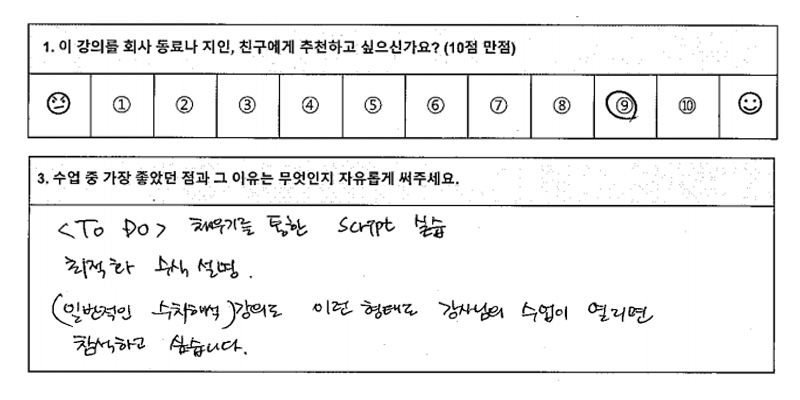 1. 이 강의를 회사 동료나 지인, 친구에게 추천하고 싶으신가요? (10점 만점)
① ② ③ ④ ⑤ ⑥ ⑦ ⑧ ⑨ ⑩
3. 수업 중 가장 좋았던 점과 그 이유는 무엇인지 자유롭게 써주세요.
<To Do> 채우기를 통한 Script 실습
최적화 수식 설명.
(일반적인 수치해석)강의도 이런 형태로 강사님의 수업이 열리면
참석하고 싶습니다.